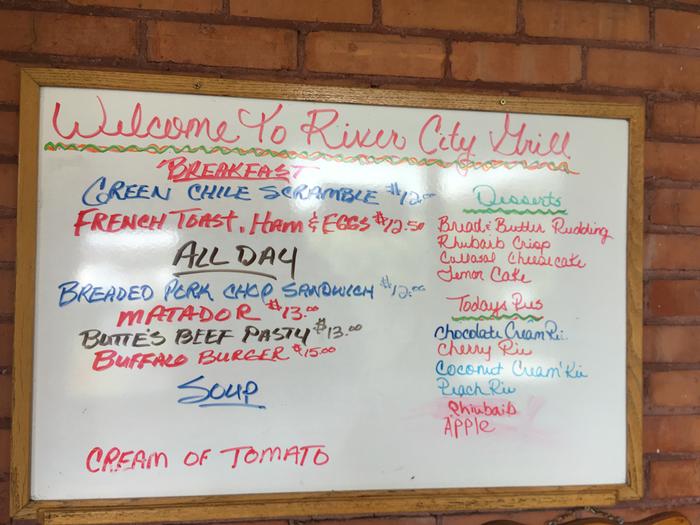 Welcome To River City Grill
"BREAKFAST
GREEN CHILE SCRAMBLE $12.00
FRENCH TOAST, HAM & EGGS $12.50
ALL DAY
BREADED PORK CHOP SANDWICH $12.00
MATADOR $13.00
BUTTE'S BEEF PASTY $13.00
BUFFALO BURGER $15.00
SOUP
CREAM OF TOMATO
Desserts
Bread & Butter Pudding
Rhubarb Crisp
Cheesecake
Lemon Cake
Todays Pies
Chocolate Cream Pie
Cherry Pie
Coconut Cream Pie
Peach Pie
Rhubarb
APPLE